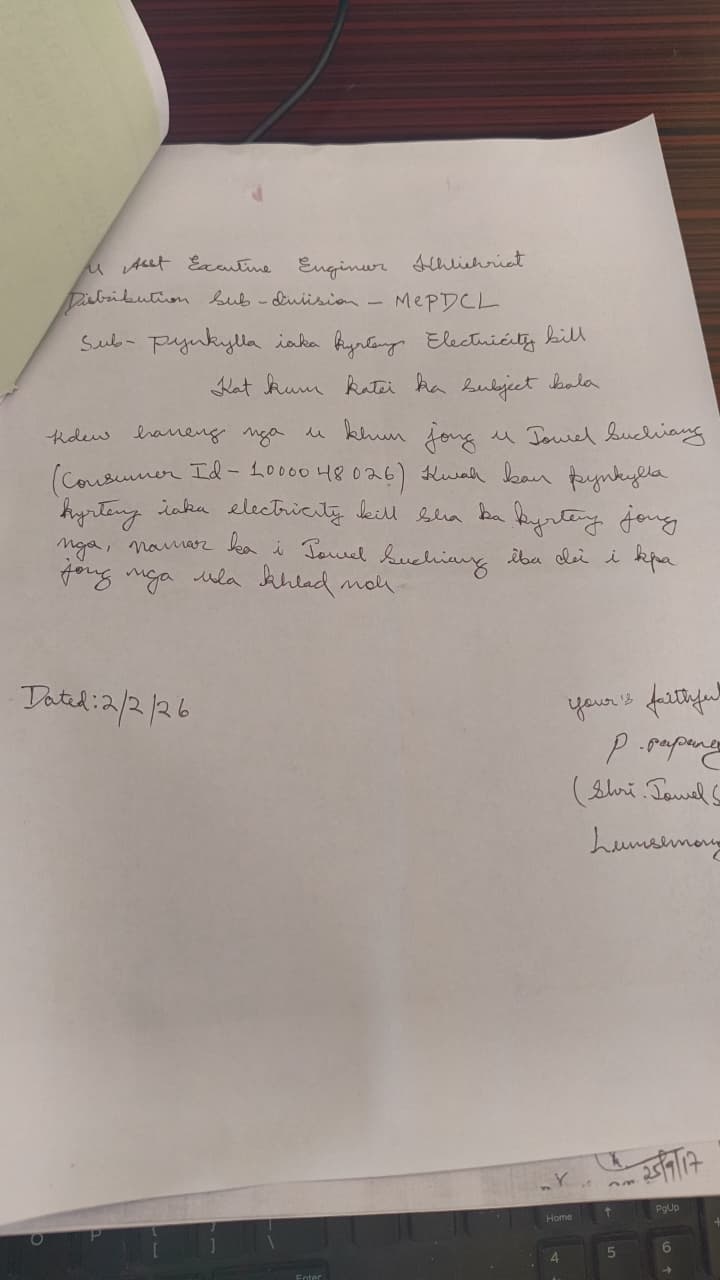 U Asst Executive Engineer Khliehriat
Distribution Sub-division - MePDCL
Sub- Pynkylla iaka kyrteng Electricity bill
Kat kum katei ka subject bala
kdew haneng nga u khun jong u Jowel Suchiang
(Consumer Id - 1000048026) Kwah ban pynkylla
kyrteng iaka electricity bill sha ka kyrteng jong
nga, namar ba i Jowel Suchiang iba dei i kpa
jong nga ula khlad noh
Dated: 2/2/26
your's faithful
P.
(Shri. Jowel S
Lumshnong
25/9/17